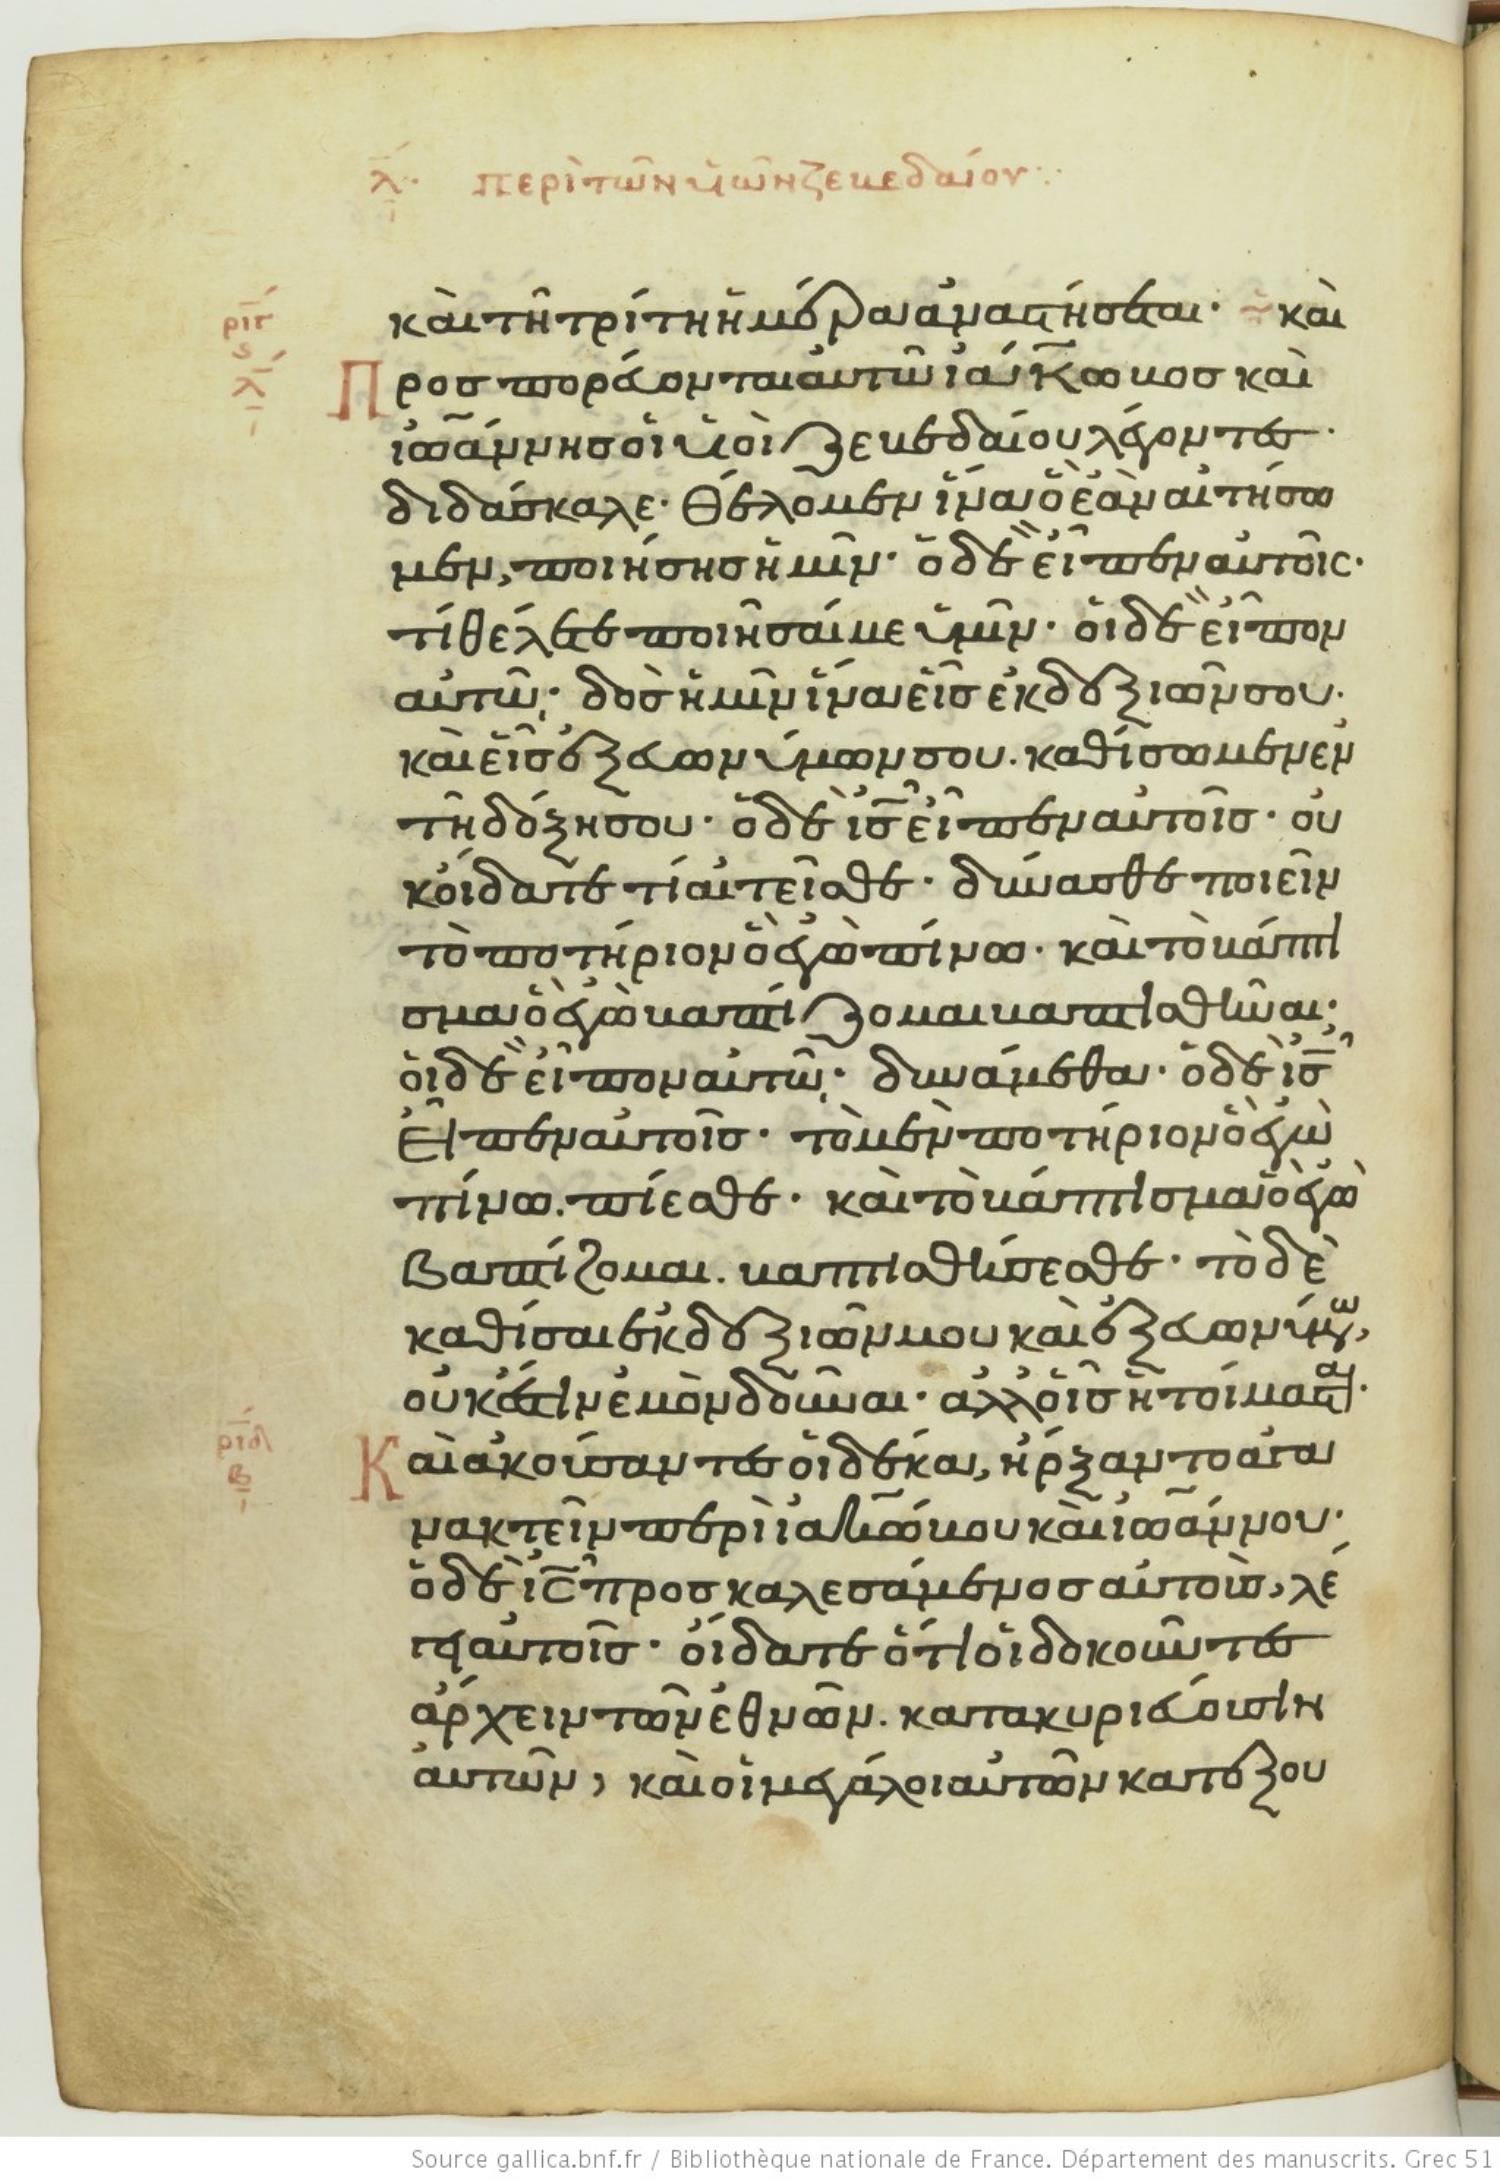 λ· περὶ τῶν υἱῶν ζεβεδαίου:·
καὶ τῆ τρίτη ἡμέρα ἀναστήσεται· καὶ
ριγ
ς
λ
Προσπορεύονται αὐτῶ ἰάκωβος καὶ
ἰωάννης οἱ υἱοὶ ζεβεδαίου λέγοντες·
διδάσκαλε· θέλομεν ἵνα ὃ ἐὰν αἰτήσω
μεν, ποιήσης ἡμῖν· ὁ δὲ εἶπεν αὐτοῖς·
τί θέλετε ποιῆσαί με ὑμῖν· οἱ δὲ εἶπον
αὐτῶ· δὸς ἡμῖν ἵνα εἷς ἐκ δεξιῶν σου·
καὶ εἷς ἐξ εὐωνύμων σου. καθίσωμεν ἐν
τῆ δόξη σου· ὁ δὲ ις εἶπεν αὐτοῖς· οὐ
κ οἴδατε τί αἰτεῖσθε· δύνασθε ποιεῖν
τὸ ποτήριον ὃ ἐγὼ πίνω· καὶ τὸ βάπτι
σμα ὃ ἐγὼ βαπτίζομαι βαπτισθῆναι·
οἱ δὲ εἶπον αὐτῶ· δυνάμεθα· ὁ δὲ ις
εἶπεν αὐτοῖς· τὸ μὲν ποτήριον ὃ ἐγὼ
πίνω. πίεσθε· καὶ τὸ βάπτισμα ὃ ἐγὼ
βαπτίζομαι. βαπτισθήσεσθε· τὸ δὲ
καθίσαι ἐκ δεξιῶν μου καὶ ἐξ εὐωνύμω,
οὐκ έστιν ἐμὸν δοῦναι· ἀλλ οἷς ἡτοίμαστα·
ριδ
β
Καὶ ἀκούσαντες οἱ δέκα, ἤρξαντο ἀγα
νακτεῖν περὶ ἰακώβου καὶ ἰωάννου·
ὁ δὲ ις προσκαλεσάμενος αὐτοὺς, λέ
γει αὐτοῖς· οἴδατε ὅτι οἱ δοκοῦντες
ἄρχειν τῶν ἐθνῶν. κατακυριεύουσιν
αὐτῶν, καὶ οἱ μεγάλοι αὐτῶν κατεξου
Source gallica.bnf.fr / Bibliothèque nationale de France. Département des manuscrits. Grec 51